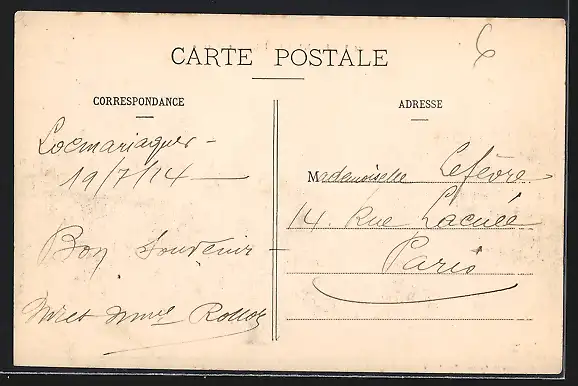 6
CARTE POSTALE
CORRESPONDANCE
Locmariaquer -
19/7/14
Bon Souvenir
Mr et Mme
ADRESSE
Mademoiselle Lefèvre
14. Rue Lacuée
Paris